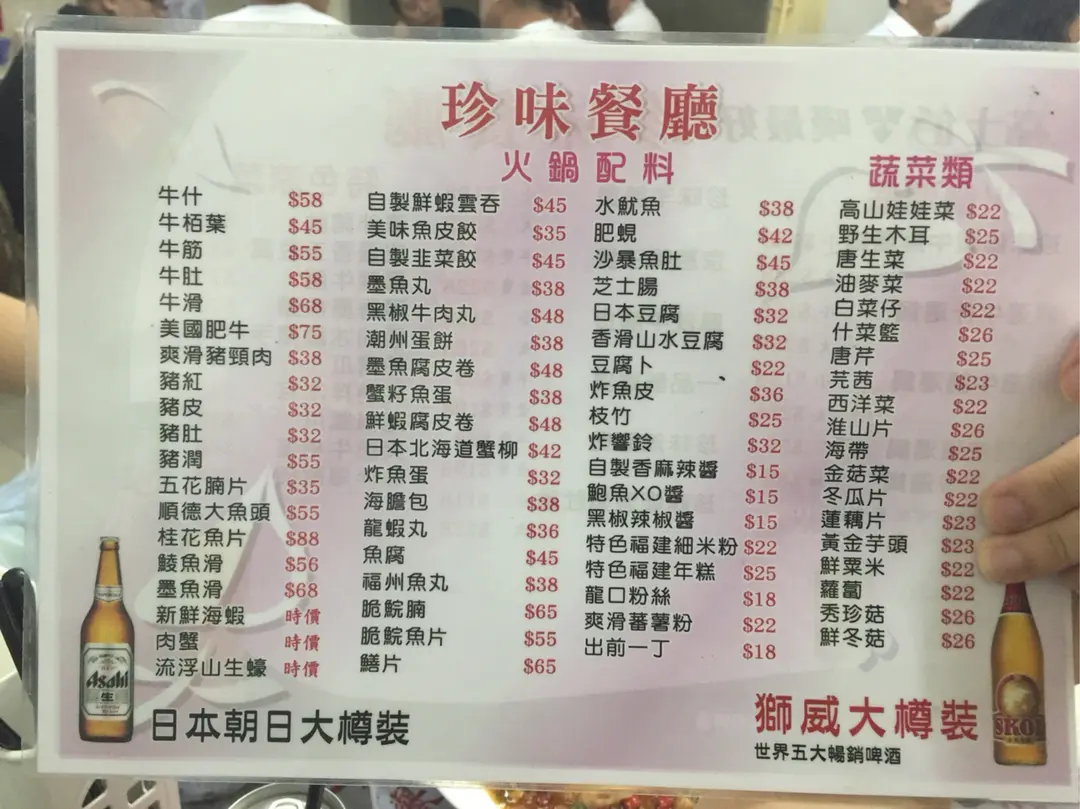 珍味餐廳
火鍋配料
牛什 $58
牛栢葉 $45
牛筋 $55
牛肚 $58
牛滑 $68
美國肥牛 $75
爽滑豬頸肉 $38
豬紅 $32
豬皮 $32
豬肚 $32
豬潤 $55
五花腩片 $35
順德大魚頭 $55
桂花魚片 $88
鯪魚滑 $56
墨魚滑 $68
新鮮海蝦 時價
肉蟹 時價
流浮山生蠔 時價
自製鮮蝦雲吞 $45
美味魚皮餃 $35
自製韭菜餃 $45
墨魚丸 $38
黑椒牛肉丸 $48
潮州蛋餅 $38
墨魚腐皮卷 $48
蟹籽魚蛋 $38
鮮蝦腐皮卷 $48
日本北海道蟹柳 $42
炸魚蛋 $32
海膽包 $38
龍蝦丸 $36
魚腐 $45
福州魚丸 $38
脆鯇腩 $65
脆鯇魚片 $55
鱔片 $65
水魷魚 $38
肥蜆 $42
沙暴魚肚 $45
芝士腸 $38
日本豆腐 $32
香滑山水豆腐 $32
豆腐卜 $22
炸魚皮 $36
枝竹 $25
炸響鈴 $32
自製香麻辣醬 $15
鮑魚XO醬 $15
黑椒辣椒醬 $15
特色福建細米粉 $22
特色福建年糕 $25
龍口粉絲 $18
爽滑蕃薯粉 $22
出前一丁 $18
蔬菜類
高山娃娃菜 $22
野生木耳 $25
唐生菜 $22
油麥菜 $22
白菜仔 $22
什菜籃 $26
唐芹 $25
芫茜 $23
西洋菜 $22
淮山片 $26
海帶 $25
金菇菜 $22
冬瓜片 $22
蓮藕片 $23
黃金芋頭 $23
鮮粟米 $22
蘿蔔 $22
秀珍菇 $26
鮮冬菇 $26
Asahi
生
日本朝日大樽裝
獅威大樽裝
世界五大暢銷啤酒
SKOL